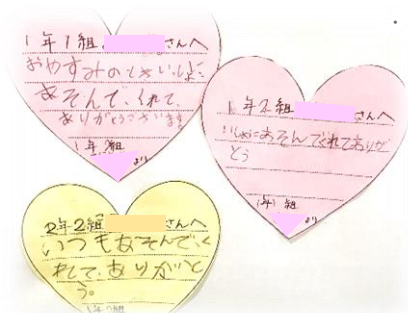 1年1組 さんへ
おやすみのときいっしょに
あそんで、くれて、
ありがとうございます
1年2組
より
1年2組 さんへ
いっしょにあそんでくれてありが
とう
1年1組
より
2年2組 さんへ
いつもあそんで、く
れて、ありがと
う。